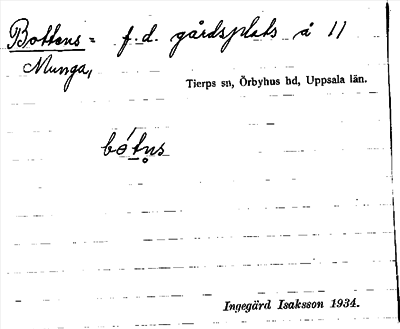 Bottens = f.d. gårdsplats å 11
Munga,
Tierps sn, Örbyhus hd, Uppsala län.
bó̱tn̥s
Ingegärd Isaksson 1934.